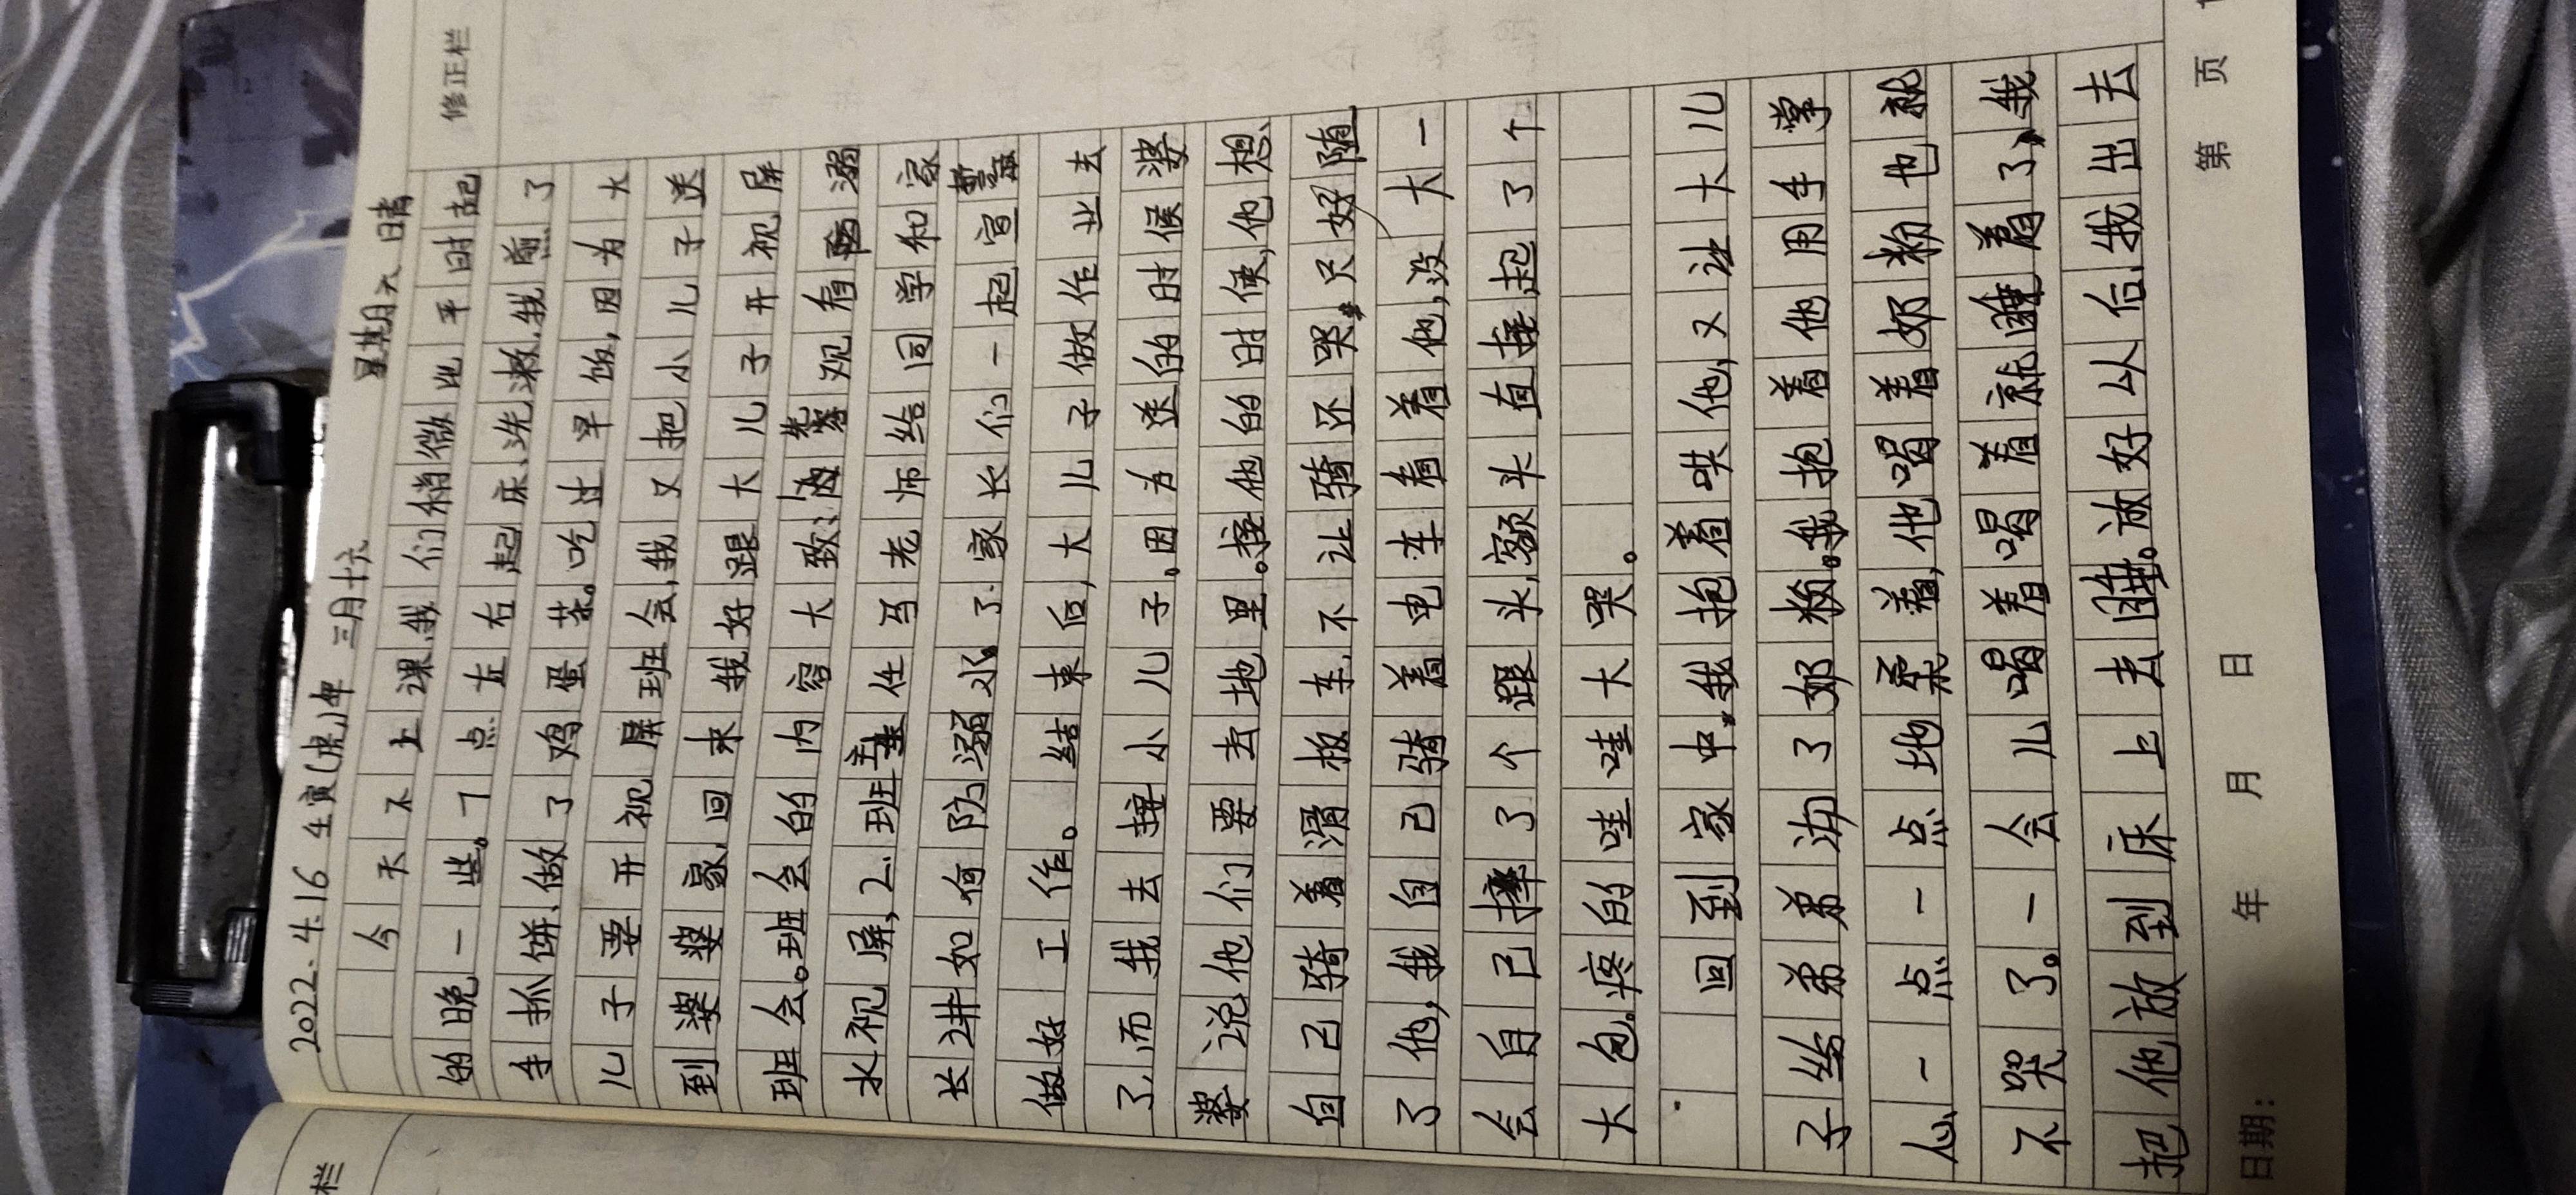 修正栏
2022.4.16 壬寅(虎)年 三月十六 星期六 晴
今天不上课,我们稍微比平时起
的晚一些。7点左右起床、洗漱,我煎了
手抓饼、做了鸡蛋羹。吃过早饭,因为大
儿子要开视屏班会,我又把小儿子送
到婆婆家,回来我好跟大儿子开视屏
班会。班会的内容大致: 观看溺
水视屏,2.班主任马老师给同学和家
长讲如何防溺水。3.家长们一起宣誓
做好工作。结束后,大儿子做作业去
了,而我去接小儿子。因为送的时候婆
婆说他们要去地里。接他的时候,他想
自己骑着滑板车,不让骑还哭,只好随
了他,我自己骑着电车看着他,没大一
会自己摔了个跟头,额头直接起了个
大包。疼的哇哇大哭。
回到家中,我抱着哄他,又让大儿
子给弟弟沏了奶粉。我抱着他用手掌
心一点一点地柔着,他喝着奶粉也就
不哭了。一会儿喝着喝着就睡着了,我
把他放到床上去睡。放好以后,我出去
日期: 年 月 日 第 页
栏